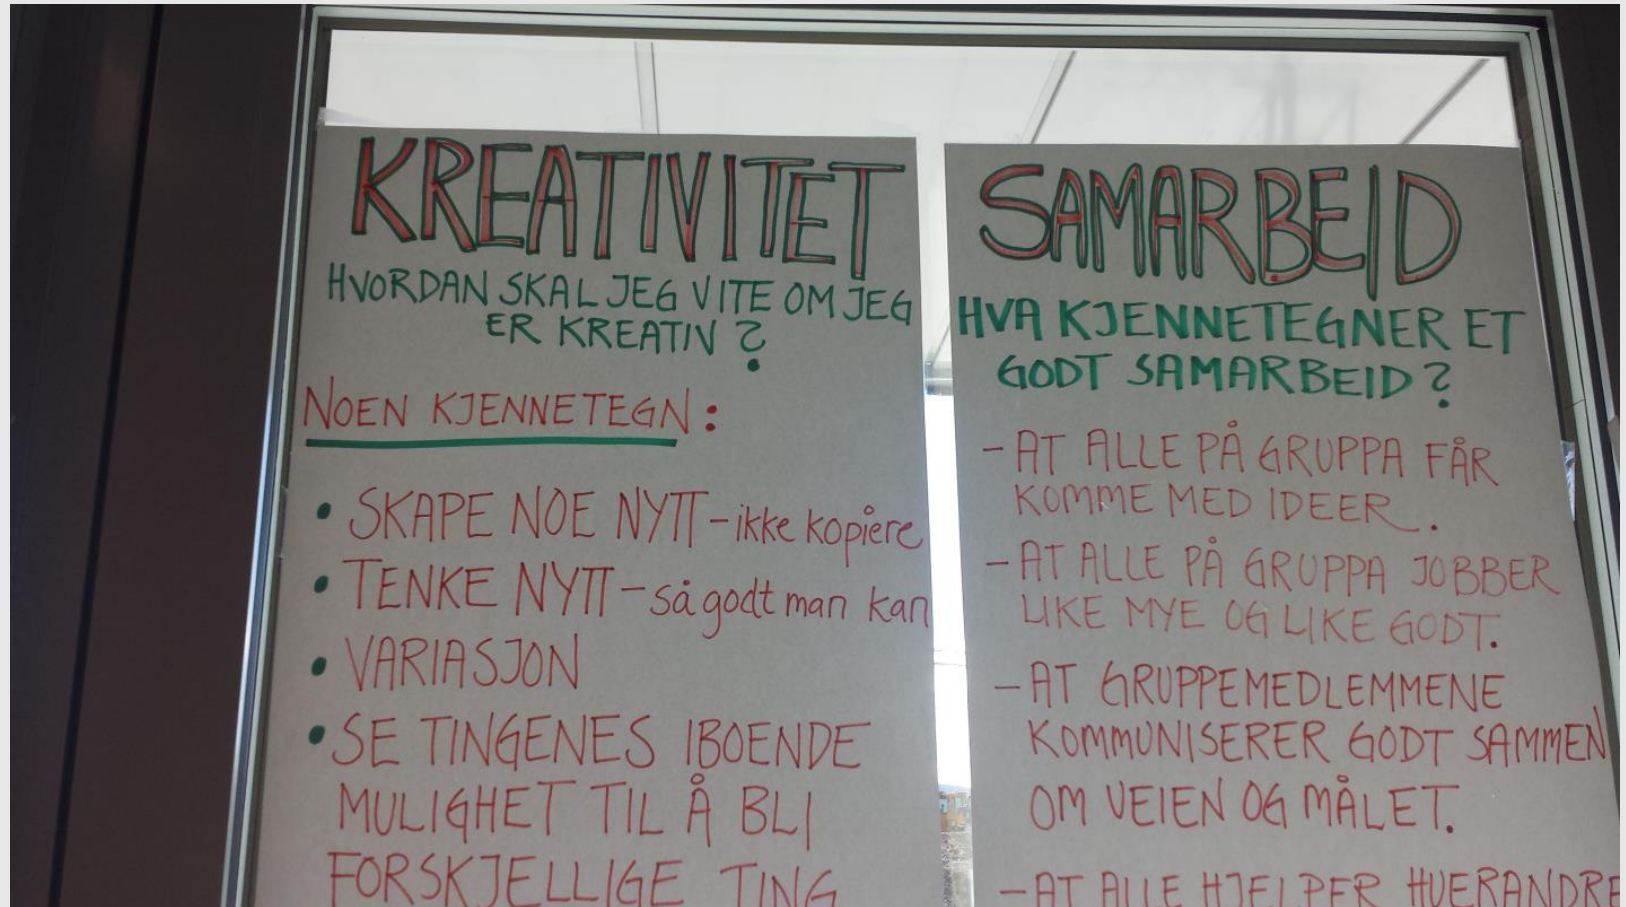 KREATIVITET
HVORDAN SKAL JEG VITE OM JEG
ER KREATIV ?
NOEN KJENNETEGN :
• SKAPE NOE NYTT - ikke kopiere
• TENKE NYTT - så godt man kan
• VARIASJON
• SE TINGENES IBOENDE
MULIGHET TIL Å BLI
FORSKJELLIGE TING
SAMARBEID
HVA KJENNETEGNER ET
GODT SAMARBEID ?
- AT ALLE PÅ GRUPPA FÅR
KOMME MED IDEER.
- AT ALLE PÅ GRUPPA JOBBER
LIKE MYE OG LIKE GODT.
- AT GRUPPEMEDLEMMENE
KOMMUNISERER GODT SAMMEN
OM VEIEN OG MÅLET.
- AT ALLE HJELPER HVERANDRE